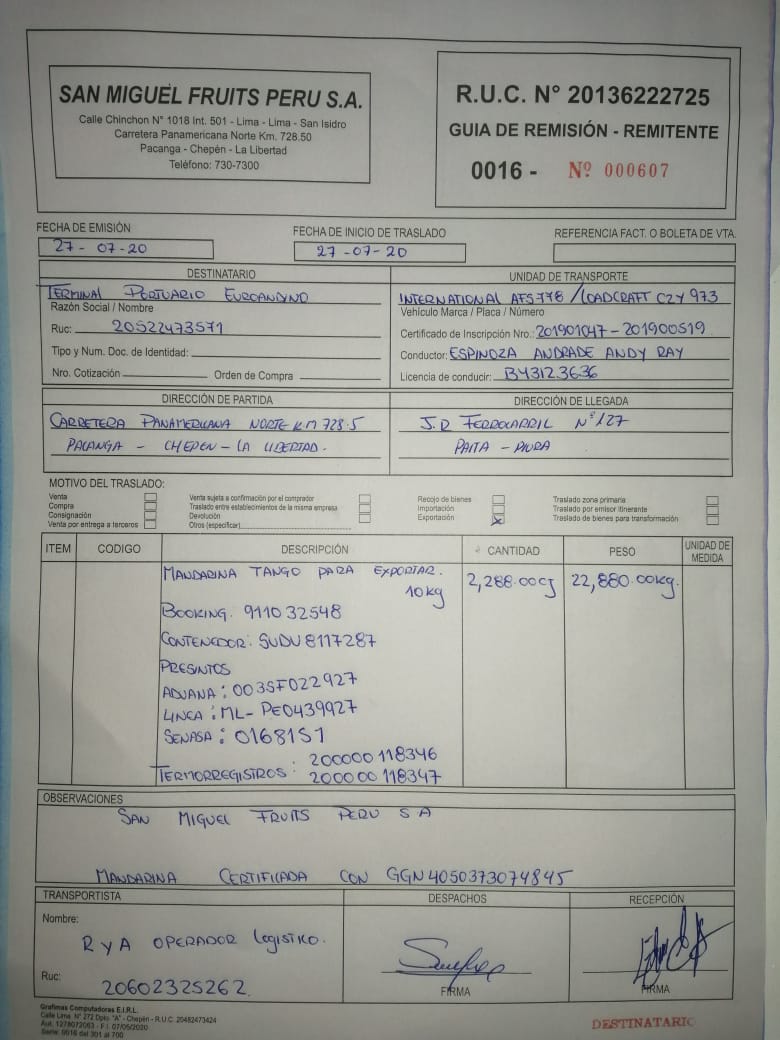 SAN MIGUEL FRUITS PERU S.A.
Calle Chinchon N° 1018 Int. 501 - Lima - Lima - San Isidro
Carretera Panamericana Norte Km. 728.50
Pacanga - Chepén - La Libertad
Teléfono: 730-7300
R.U.C. N° 20136222725
GUIA DE REMISIÓN - REMITENTE
0016 - Nº 000607
FECHA DE EMISIÓN
27-07-20
FECHA DE INICIO DE TRASLADO
27-07-20
REFERENCIA FACT. O BOLETA DE VTA.
DESTINATARIO
TERMINAL PORTUARIO EUROANDINO
Razón Social / Nombre
Ruc: 20522473571
Tipo y Num. Doc. de Identidad:
Nro. Cotización Orden de Compra
UNIDAD DE TRANSPORTE
INTERNATIONAL AFS778 / LOADCRAFT CZY 973
Vehículo Marca / Placa / Número
Certificado de Inscripción Nro.: 201901047-201900519
Conductor: ESPINOZA ANDRADE ANDY RAY
Licencia de conducir: BY3123636
DIRECCIÓN DE PARTIDA
CARRETERA PANAMERICANA NORTE KM 728.5
PACANGA - CHEPEN - LA LIBERTAD.
DIRECCIÓN DE LLEGADA
J.R FERROCARRIL N° 127
PAITA - PIURA
MOTIVO DEL TRASLADO:
Venta
Compra
Consignación
Venta por entrega a terceros
Venta sujeta a confirmación por el comprador
Traslado entre establecimientos de la misma empresa
Devolución
Otros (especificar)
Recojo de bienes
Importación
Exportación X
Traslado zona primaria
Traslado por emisor itinerante
Traslado de bienes para transformación
ITEM CODIGO DESCRIPCIÓN CANTIDAD PESO UNIDAD DE MEDIDA
MANDARINA TANGO PARA EXPORTAR. 2,288.00CJ 22,880.00kg.
10kg
BOOKING. 911032548
CONTENEDOR: SUDU8117287
PRESINTOS
ADUANA: 0035F022927
LINEA: ML-PE0439927
SENASA: 0168151
TERMORREGISTROS: 200000118346
200000118347
OBSERVACIONES
SAN MIGUEL FRUITS PERU S A
MANDARINA CERTIFICADA CON GGN4050373074845
TRANSPORTISTA
Nombre:
R y A OPERADOR LOGISTICO.
Ruc: 20602325262
DESPACHOS
FIRMA
RECEPCIÓN
FIRMA
Grafimas Computadoras E.I.R.L.
Calle Lima N° 272 Dpto. "A" - Chepén - R.U.C. 20482473424
Aut. 1278072063 - F.I. 07/05/2020
Serie: 0016 del 301 al 700
DESTINATARIO